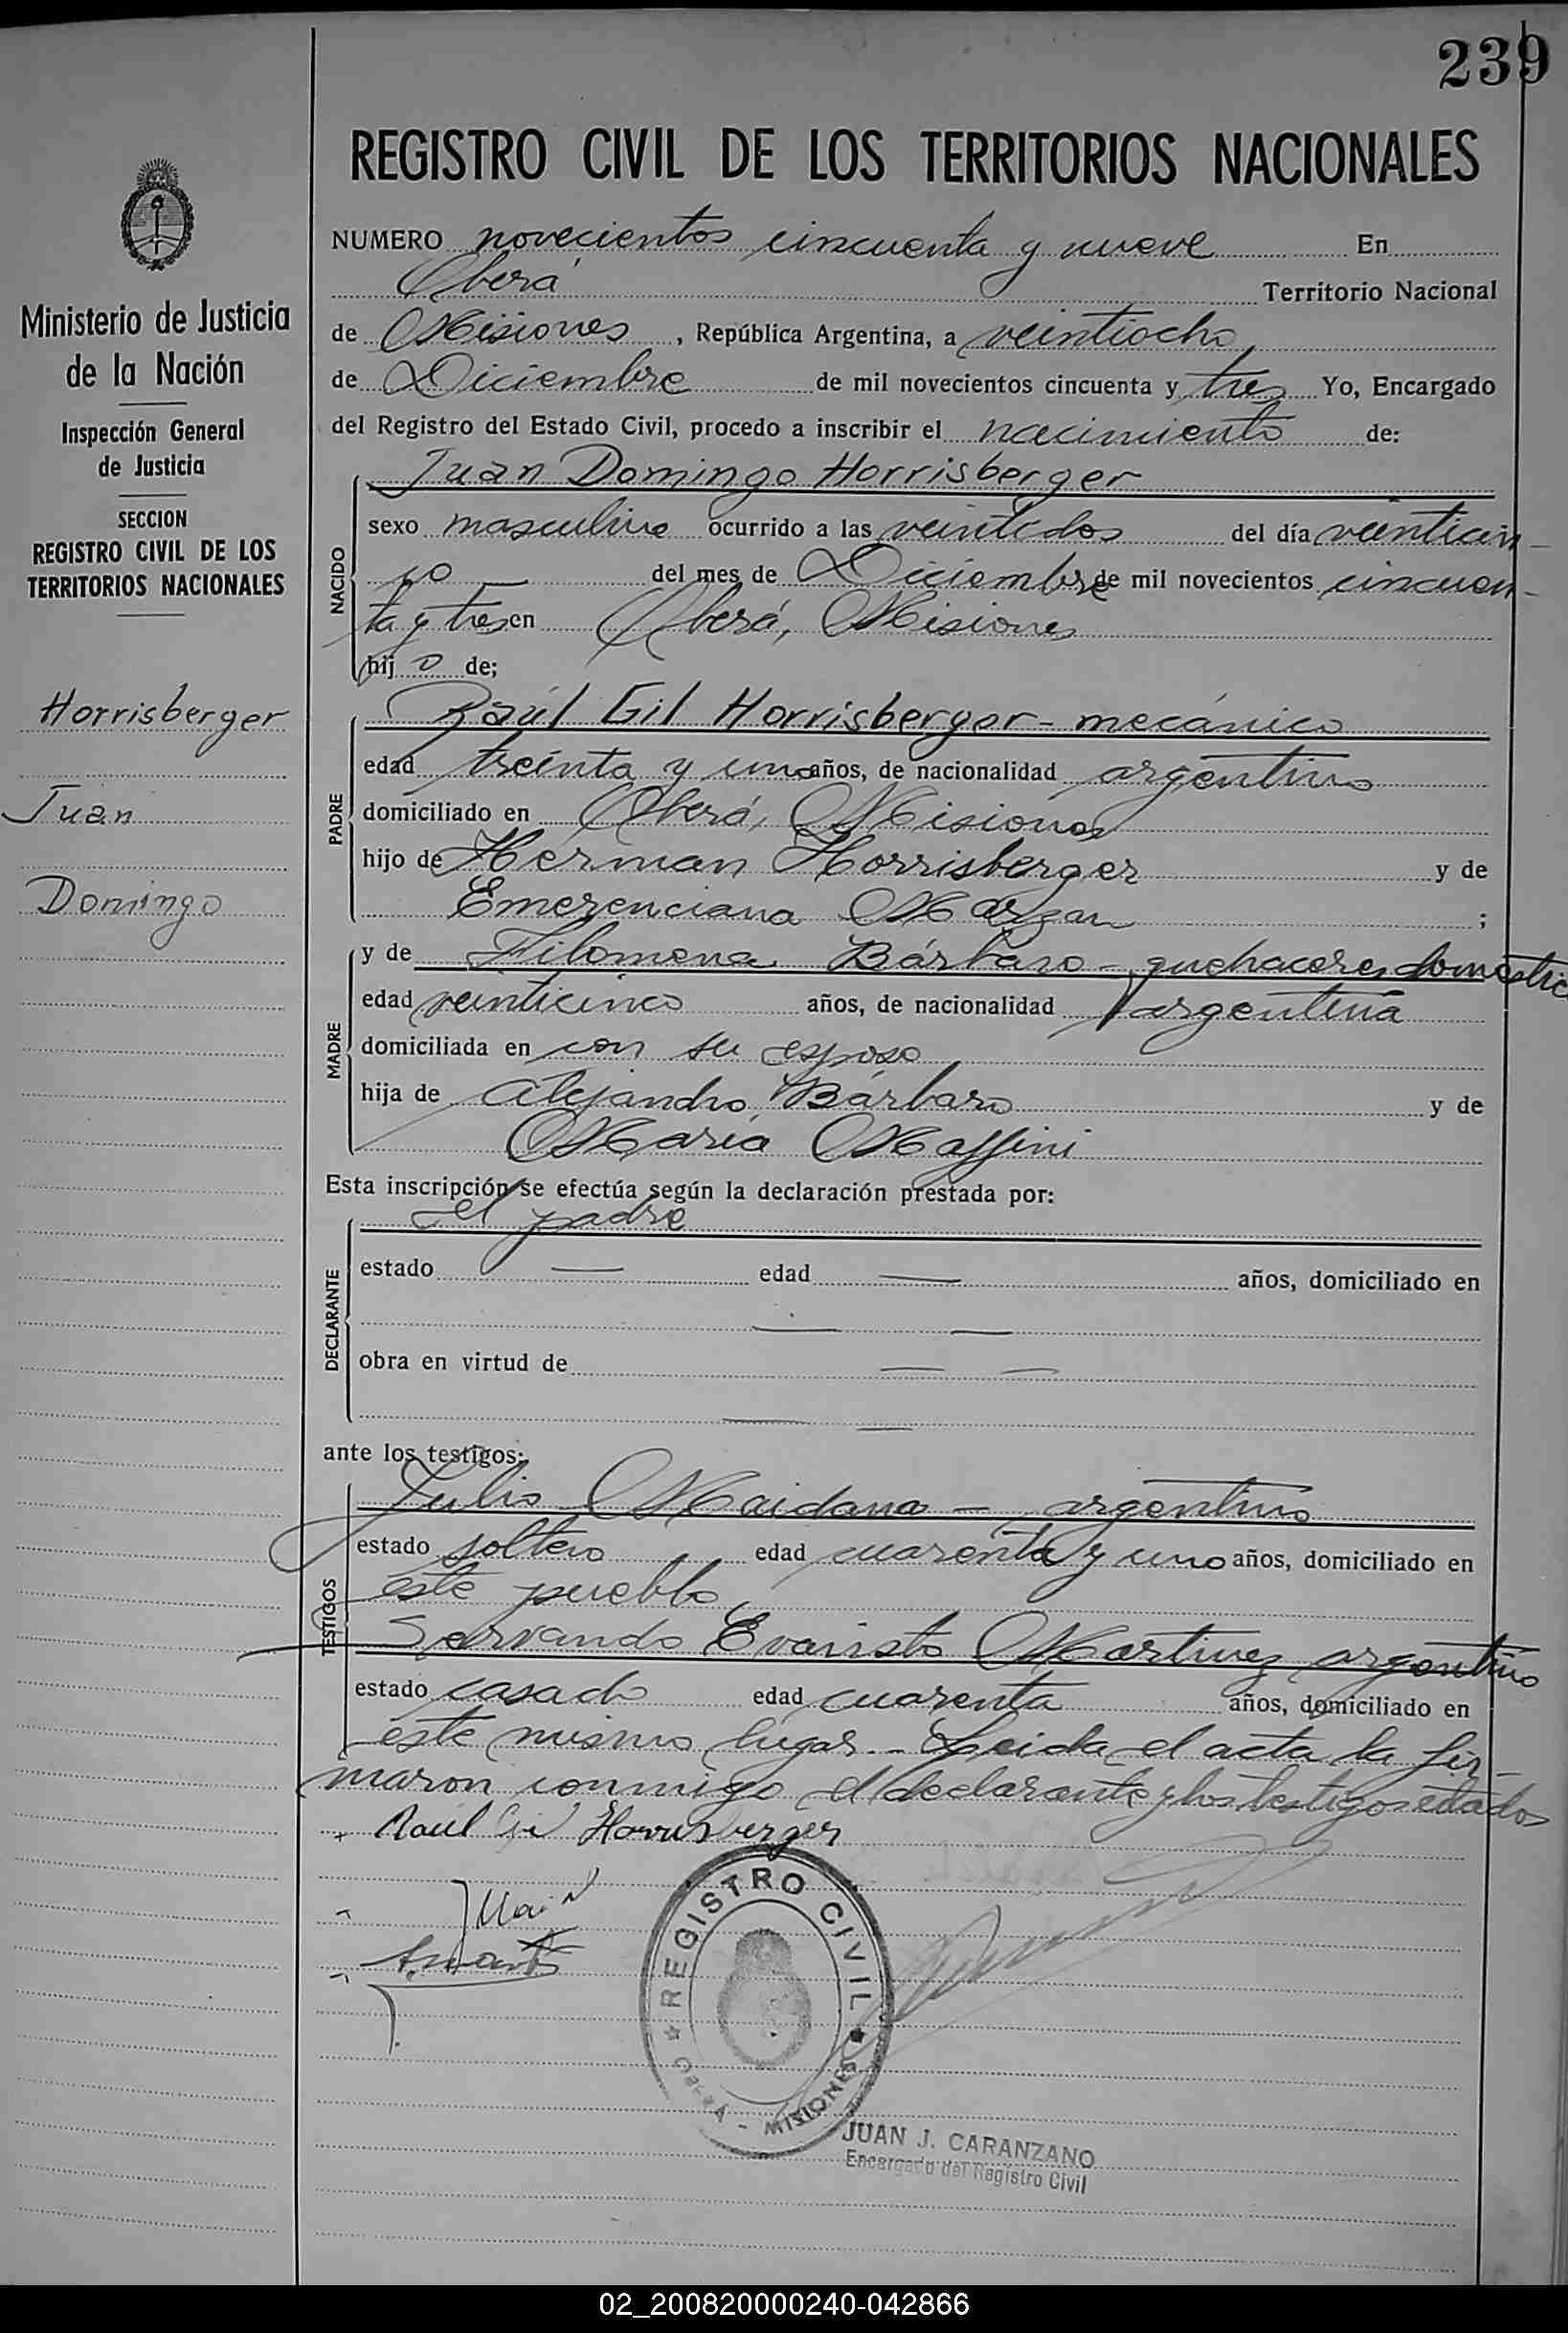 239
REGISTRO CIVIL DE LOS TERRITORIOS NACIONALES
Ministerio de Justicia
de la Nación
Inspección General
de Justicia
SECCION
REGISTRO CIVIL DE LOS
TERRITORIOS NACIONALES
Horrisberger
Juan
Domingo
NUMERO novecientos cincuenta y nueve En
Oberá Territorio Nacional
de Misiones, República Argentina, a veintiocho
de Diciembre de mil novecientos cincuenta y tres Yo, Encargado
del Registro del Estado Civil, procedo a inscribir el nacimiento de:
Juan Domingo Horrisberger
NACIDO
sexo masculino ocurrido a las veintidos del día veinticin-
co del mes de Diciembre de mil novecientos cincuen-
ta y tres en Oberá, Misiones
hijo de;
Raúl Gil Horrisberger - mecánico
PADRE
edad treinta y uno años, de nacionalidad argentino
domiciliado en Oberá, Misiones
hijo de Herman Horrisberger y de
Emerenciana ;
y de Filomena Bárbaro - quehaceres domestic
MADRE
edad veinticinco años, de nacionalidad argentina
domiciliada en con su esposo
hija de Alejandro Bárbaro y de
María Maffini
Esta inscripción se efectúa según la declaración prestada por:
el padre
DECLARANTE
estado — edad — años, domiciliado en
— —
obra en virtud de — —
— —
ante los testigos:
Julio Maidana - argentino
TESTIGOS
estado soltero edad cuarenta y uno años, domiciliado en
este pueblo
Servando Evaristo Martinez argentino
estado casado edad cuarenta años, domiciliado en
este mismo lugar. - Leida el acta la fir-
maron conmigo el declarante y los testigos citados
Raul Gil Horrisberger
REGISTRO CIVIL
OBERA - MISIONES
JUAN J. CARANZANO
Encargado del Registro Civil
02_200820000240-042866